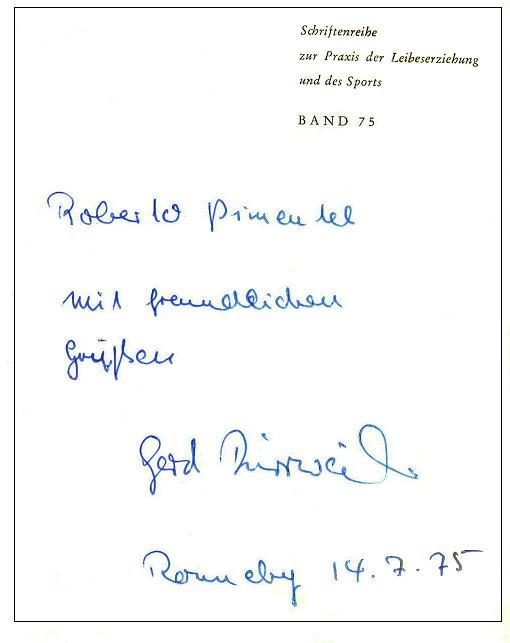 Schriftenreihe
zur Praxis der Leibeserziehung
und des Sports
BAND 75
Roberto Pimentel
mit freundlichen
Grüßen
Gerd Dürrwächter
Ronneby 14.7.75